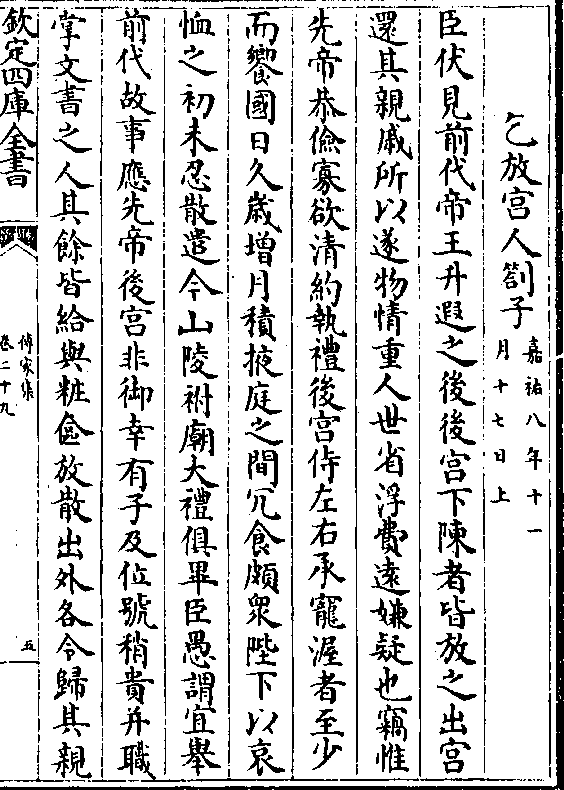 乞放宫人劄子嘉祐八年十一
月十七日上
臣伏見前代帝王升遐之後後宫下陳者皆放之出宫
還其親戚所以遂物情重人世省浮費遠嫌疑也竊惟
先帝恭儉寡欲清約執禮後宫侍左右承寵渥者至少
而饗國日久歳增月積掖庭之間冗食頗衆陛下以哀
恤之初未忍散遣今山陵祔廟大禮俱畢臣愚謂宜舉
前代故事應先帝後宫非御幸有子及位號稍貴并職
掌文書之人其餘皆給與粧奩放散出外各令歸其親
欽定四庫全書
傳家集
卷二十九
五